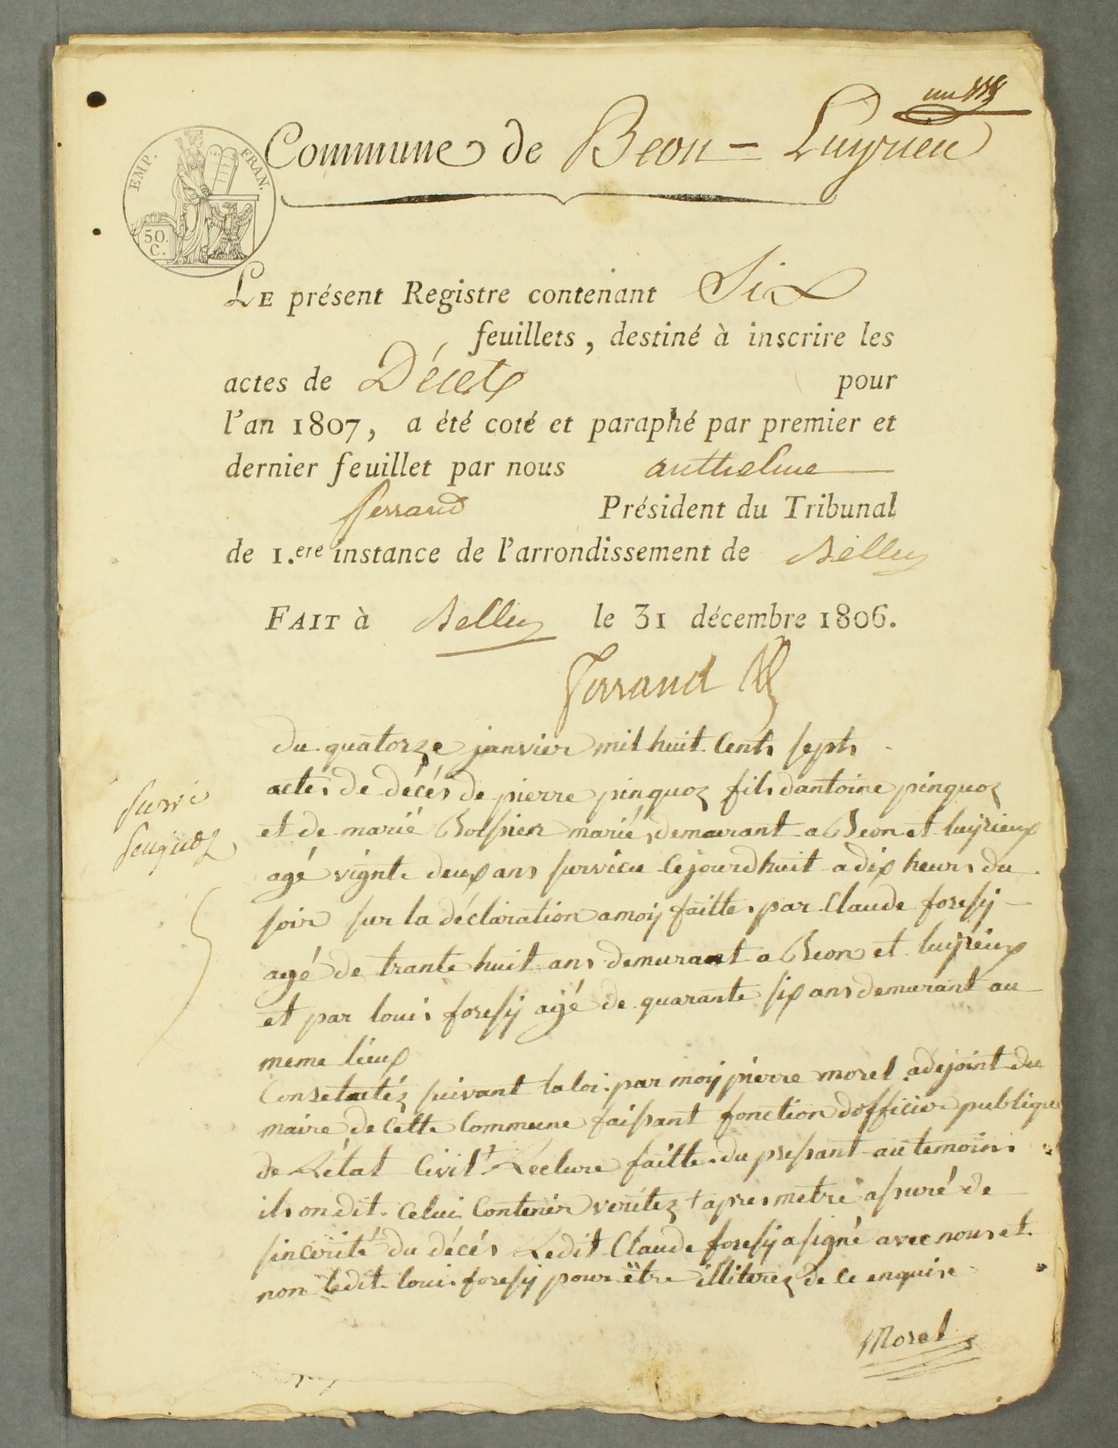 un
EMP. FRAN.
50. C.
Commune de Beon - Luyrieu
LE présent Registre contenant Six
feuillets, destiné à inscrire les
actes de Décets pour
l'an 1807, a été coté et paraphé par premier et
dernier feuillet par nous anthelme
ferrand Président du Tribunal
de 1.ere instance de l'arrondissement de Belley
FAIT à Belley le 31 décembre 1806.
Ferrand
du quatorze janvier mil huit Cents septs
actes de décés de pierre pinquoz fils dantoine pinquoz
et de marié marié demeurant a Beon et luyrieux
agé vignt deux ans survieu Cejourdhuit a dix heurs du
soir sur la déclaration a moij faitte par Claude foresij
agé de trante huit ans demurant a Beon et luyrieux
et par louis foresij agé de quarante six ans demurant au
meme lieux
Consetatéz suivant la loi par moij pierre morel adejoint du
maire de Cette Commune faisant fonction dofficier publique
de Létat Civil Lecture faitte du presant au temoins
ils on dit Celui Contenir veritéz apres metre assuré de
sincerité du décés Ledit Claude foresij a signé avec nous et
non ledit loui foresij pour être illiterez de Ce enquise
Morel